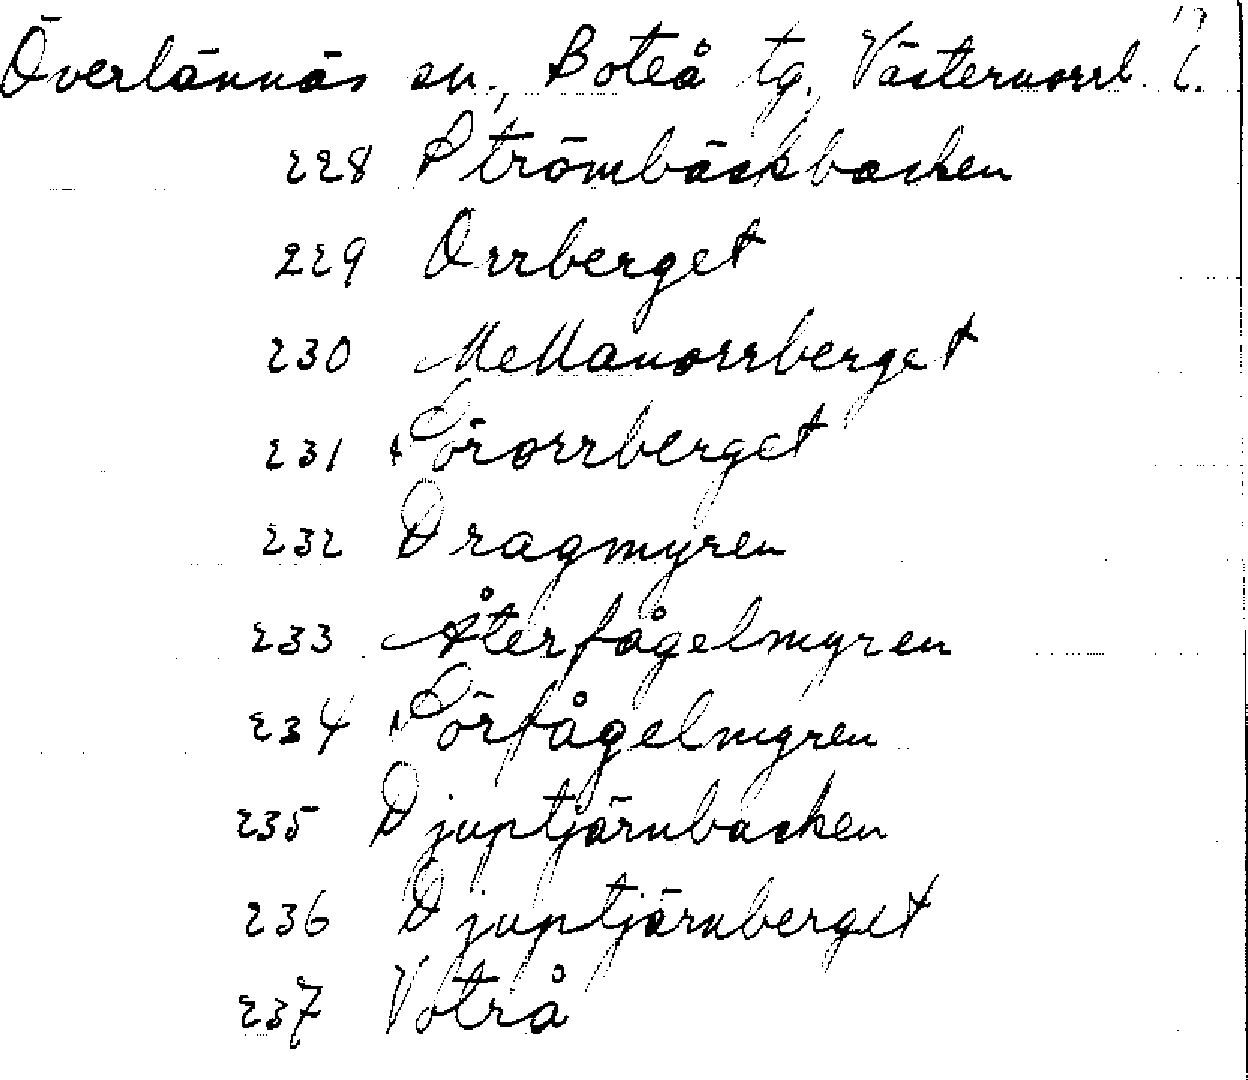 Överlännäs sn, Boteå tg. Västernorrl. l.
228 Strömbäckbacken
229 Orrberget
230 Mellanorrberget
231 Sörorrberget
232 Dragmyren
233 Återfågelmyren
234 Sörfågelmyren
235 Djuptjärnbacken
236 Djuptjärnberget
237 Voträ